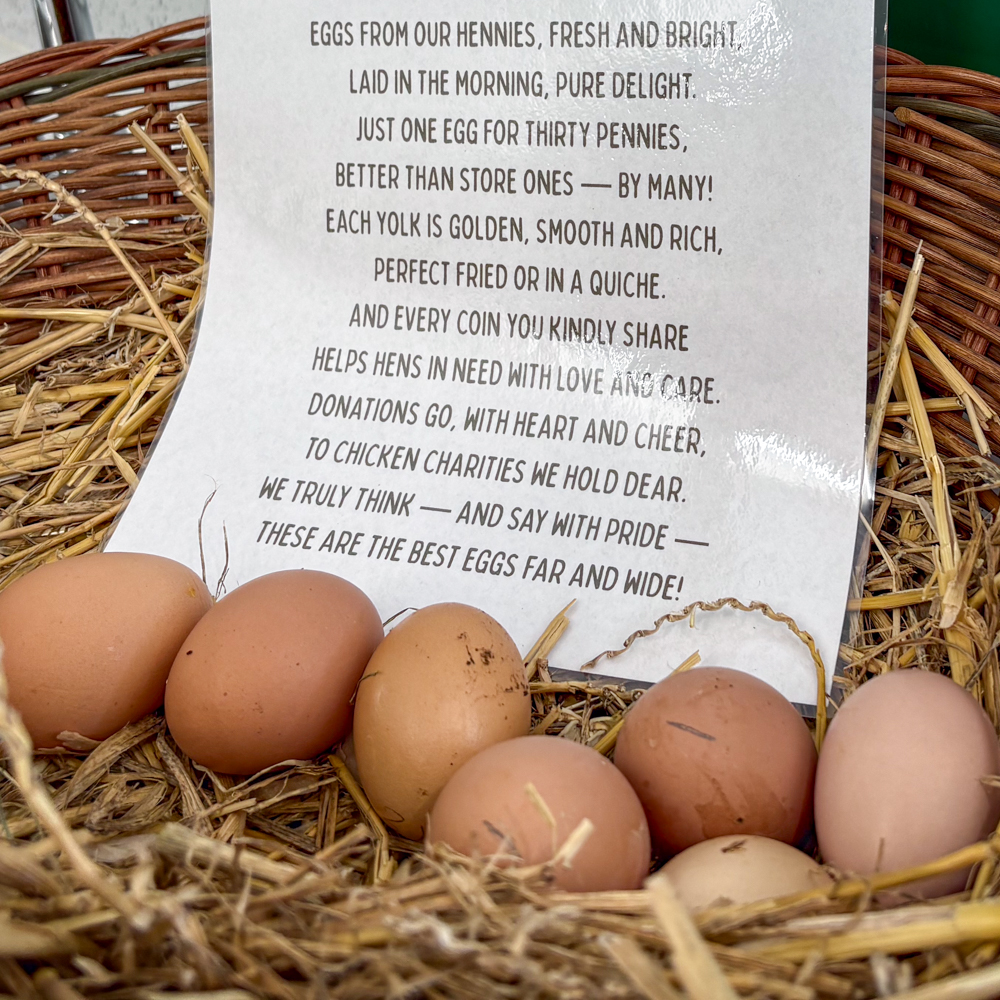 EGGS FROM OUR HENNIES, FRESH AND BRIGHT,
LAID IN THE MORNING, PURE DELIGHT.
JUST ONE EGG FOR THIRTY PENNIES,
BETTER THAN STORE ONES — BY MANY!
EACH YOLK IS GOLDEN, SMOOTH AND RICH,
PERFECT FRIED OR IN A QUICHE.
AND EVERY COIN YOU KINDLY SHARE
HELPS HENS IN NEED WITH LOVE AND CARE.
DONATIONS GO, WITH HEART AND CHEER,
TO CHICKEN CHARITIES WE HOLD DEAR.
WE TRULY THINK — AND SAY WITH PRIDE —
THESE ARE THE BEST EGGS FAR AND WIDE!